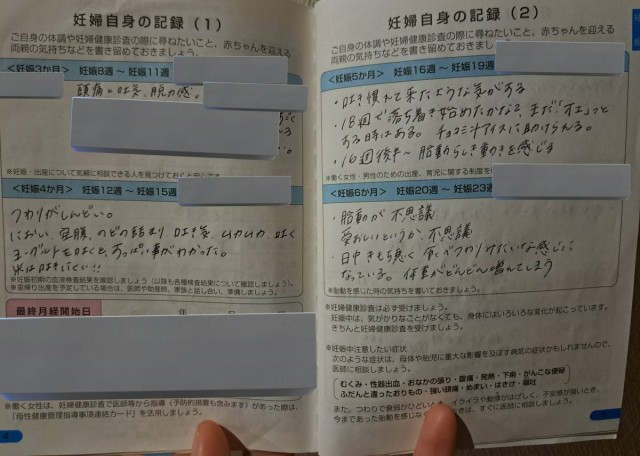 妊婦自身の記録(1)
ご自身の体調や妊婦健康診査の際に尋ねたいこと、赤ちゃんを迎える
両親の気持ちなどを書き留めておきましょう。
<妊娠3か月> 妊娠8週~妊娠11週
頭痛と吐き気、脱力感。
※妊娠・出産について気軽に相談できる人を見つけておくと
<妊娠4か月> 妊娠12週~妊娠15週
つわりがしんどい。
におい、空腹、のどの詰まり、吐き気、ムカムカ、吐く
ヨーグルトを吐くと、すっぱい事がわかった。
米は吐きにくい!!
※妊娠初期の血液検査結果を確認しましょう(以降も各種検査結果について確認しましょう)。
※里帰り出産を予定している場合は、医師や助産師、家族と話し合い、準備しましょう。
最終月経開始日 年 月 日
※働く女性は、妊婦健康診査で医師等から指導(予防的措置も含みます)があった際は、
「母性健康管理指導事項連絡カード」を活用しましょう。
4
妊婦自身の記録(2)
ご自身の体調や妊婦健康診査の際に尋ねたいこと、赤ちゃんを迎える
両親の気持ちなどを書き留めておきましょう。
<妊娠5か月> 妊娠16週~妊娠19週
・吐き慣れて来たような気がする
・18週で落ち着き始めたかな?まだ「オエ」っと
する時はある。チョコミントアイスに助けられる。
・16週後半~胎動らしき動きを感じる
※働く女性・男性のための出産、育児に関する制度を
<妊娠6か月> 妊娠20週~妊娠23週
・胎動が不思議
愛おしいというか、不思議
・日中きもち悪く 食べづわりみたいな感じに
なっている。体重がどんどん増えてしまう
※胎動を感じた時の気持ちを書いておきましょう。
※妊婦健康診査は必ず受けましょう。
妊娠中は、気がかりなことがなくても、身体にはいろいろな変化が起こっています。
きちんと妊婦健康診査を受けましょう。
※妊娠中注意したい症状
次のような症状は、母体や胎児に重大な影響を及ぼす病気の症状かもしれませんので、
医師に相談しましょう。
むくみ・性器出血・おなかの張り・腹痛・発熱・下痢・がんこな便秘
ふだんと違ったおりもの・強い頭痛・めまい・はきけ・嘔吐
また、つわりで食事がひどいとき、イライラや動悸がはげしく、不安感が強いとき、
今まであった胎動を感じなく きは、すぐに医師に相談しましょう。